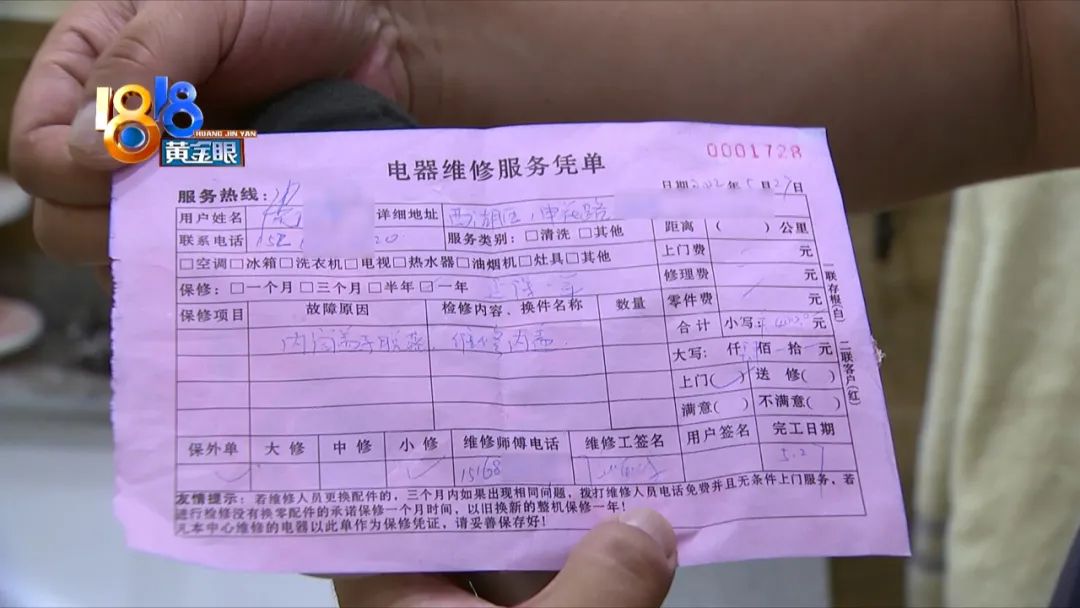 1818
HUANG JIN YAN
黄金眼
电器维修服务凭单
0001728
服务热线:
日期2022年5月27日
用户姓名
详细地址 西湖区,申花路
距离 ( ) 公里
联系电话
服务类别: □清洗 □其他
上门费 元
□空调□冰箱□洗衣机□电视□热水器□油烟机□灶具□其他
修理费 元
保修: □一个月□三个月□半年☑一年
零件费 元
保修项目
故障原因
检修内容、换件名称
数量
合计 小写: 元
大写: 仟 佰 拾 元
上门(✓) 送修( )
满意( ) 不满意( )
一联存根(白)
二联客户(红)
保外单
大修
中修
小修
维修师傅电话
维修工签名
用户签名
完工日期
✓
✓
15168
5.27
友情提示: 若维修人员更换配件的, 三个月内如果出现相同问题, 拨打维修人员电话免费并且无条件上门服务, 若
进行检修没有换零配件的承诺保修一个月时间, 以旧换新的整机保修一年!
凡本中心维修的电器以此单作为保修凭证, 请妥善保存好!